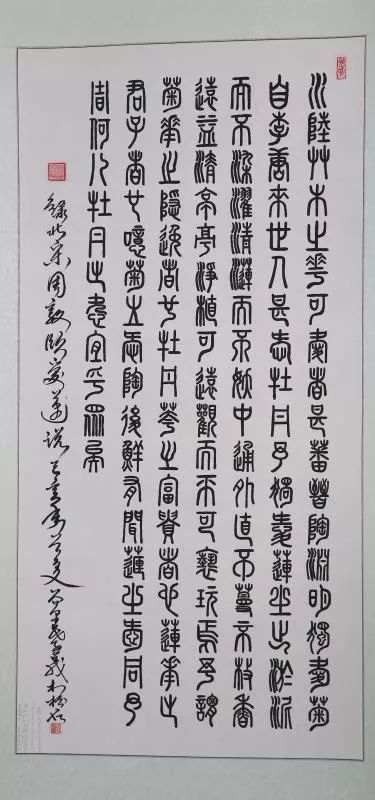 水陸艸木之華可愛者甚蕃晉陶淵明獨愛菊
自李唐來世人甚愛牡丹予獨愛蓮之出淤泥
而不染濯清漣而不妖中通外直不蔓不枝香
遠益清亭亭淨植可遠觀而不可褻玩焉予謂
菊華之隱逸者也牡丹華之富貴者也蓮華之
君子者也噫菊之愛陶後鮮有聞蓮之愛同予
者何人牡丹之愛宜乎眾矣
錄北宋周敦頤愛蓮說